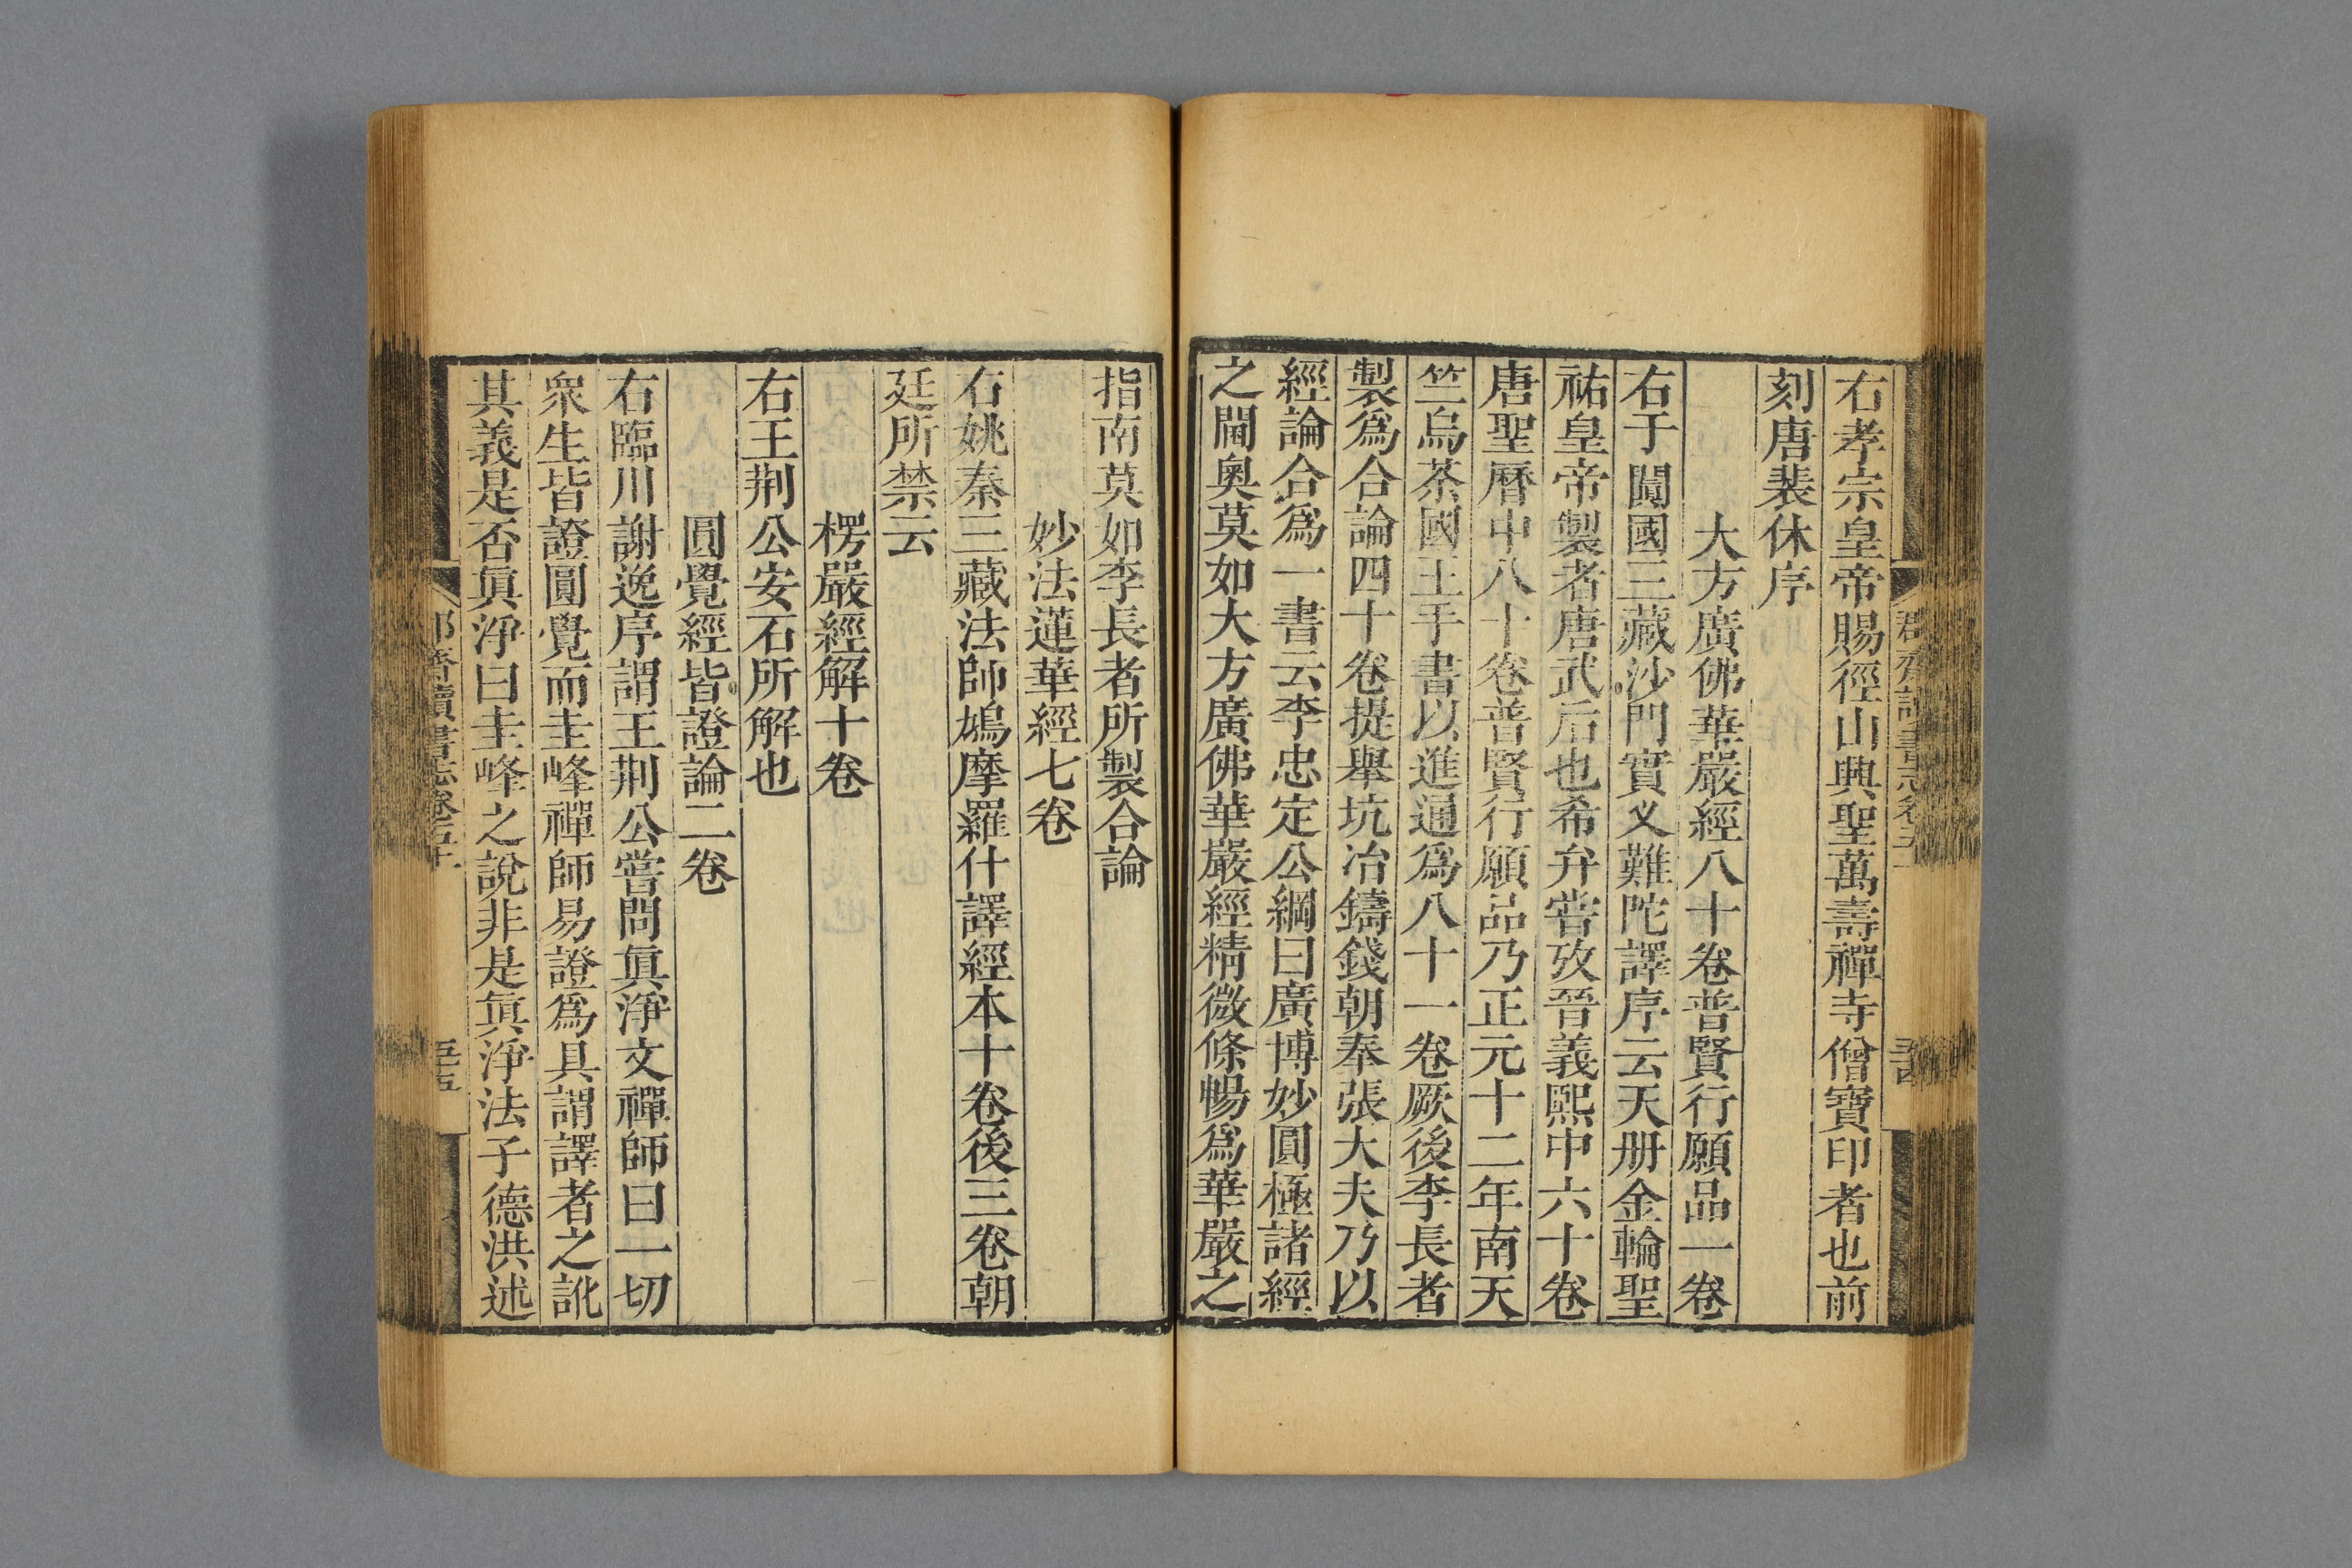 右孝宗皇帝賜徑山興聖萬壽禪寺僧寶印者也前
刻唐裴休序
大方廣佛華嚴經八十卷普賢行願品一卷
右于闐國三藏沙門實义難陀譯序云天册金輪聖
祐皇帝製者唐武后也希弁嘗攷晉義熙中六十卷
唐聖曆中八十卷普賢行願品乃正元十二年南天
竺烏茶國王手書以進通爲八十一卷厥後李長者
製爲合論四十卷提舉坑冶鑄錢朝奉張大夫乃以
經論合爲一書云李忠定公綱曰廣博妙圓極諸經
之閫奧莫如大方廣佛華嚴經精微條暢爲華嚴之
指南莫如李長者所製合論
妙法蓮華經七卷
右姚秦三藏法師鳩摩羅什譯經本十卷後三卷朝
廷所禁云
楞嚴經解十卷
右王荆公安石所解也
圓覺經皆證論二卷
右臨川謝逸序謂王荆公嘗問眞淨文禪師曰一切
衆生皆證圓覺而圭峰禪師易證爲具謂譯者之訛
其義是否眞淨曰圭峰之說非是眞淨法子德洪述